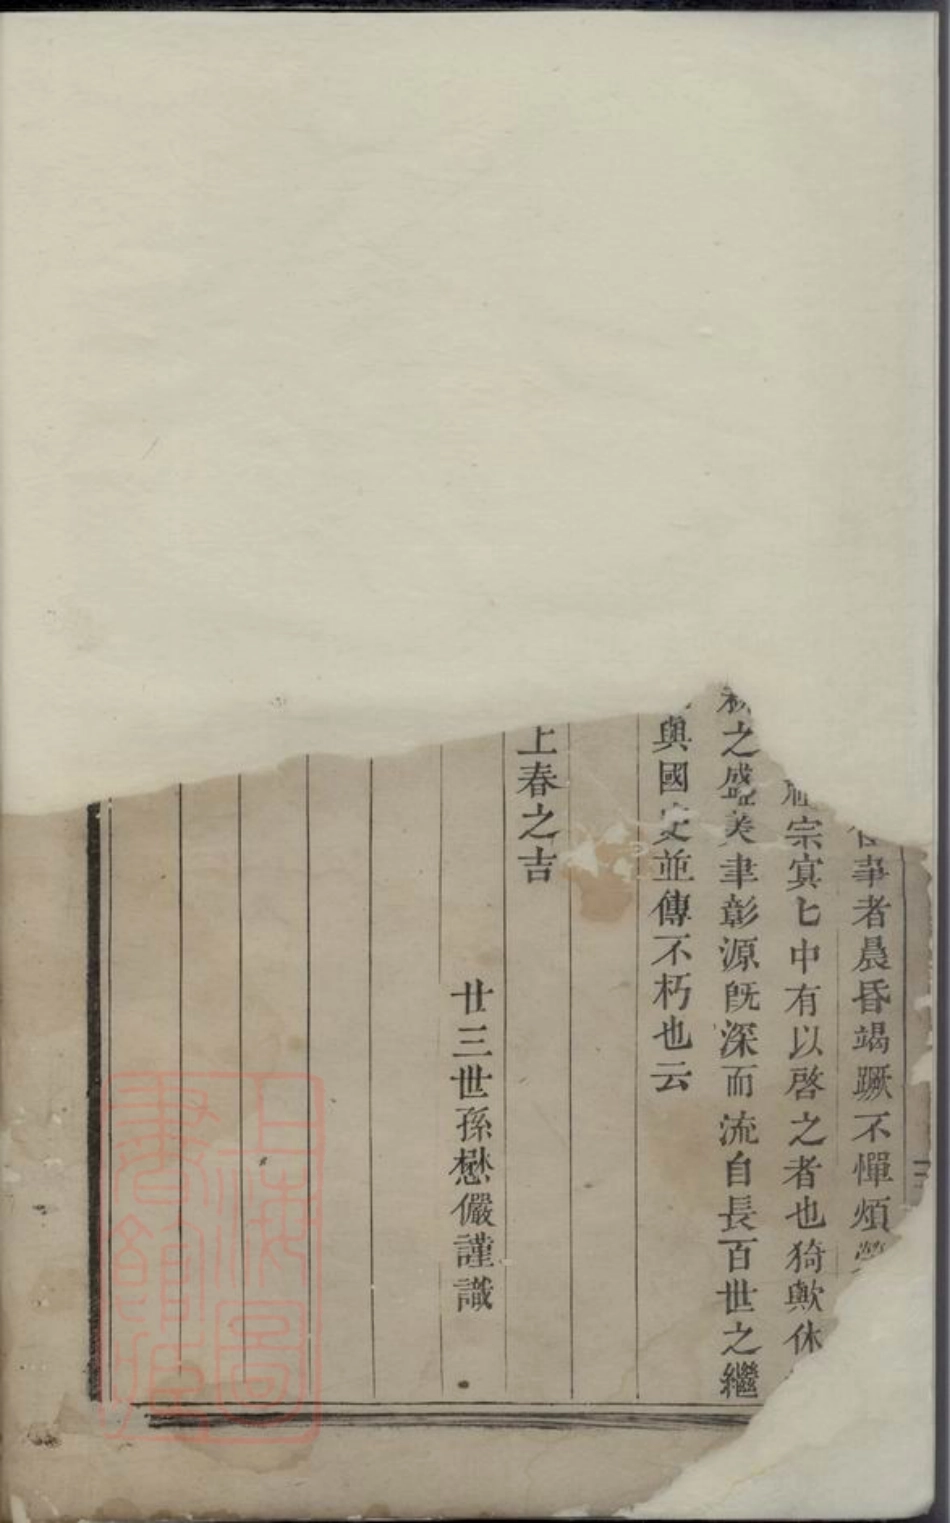 事者晨昏竭蹶不憚煩
宗寞匕中有以啓之者也猗歟休
之盛美聿彰源旣深而流自長百世之繼
與國史並傳不朽也云
上春之吉
廿三世孫懋儼謹識
上海圖
書館藏